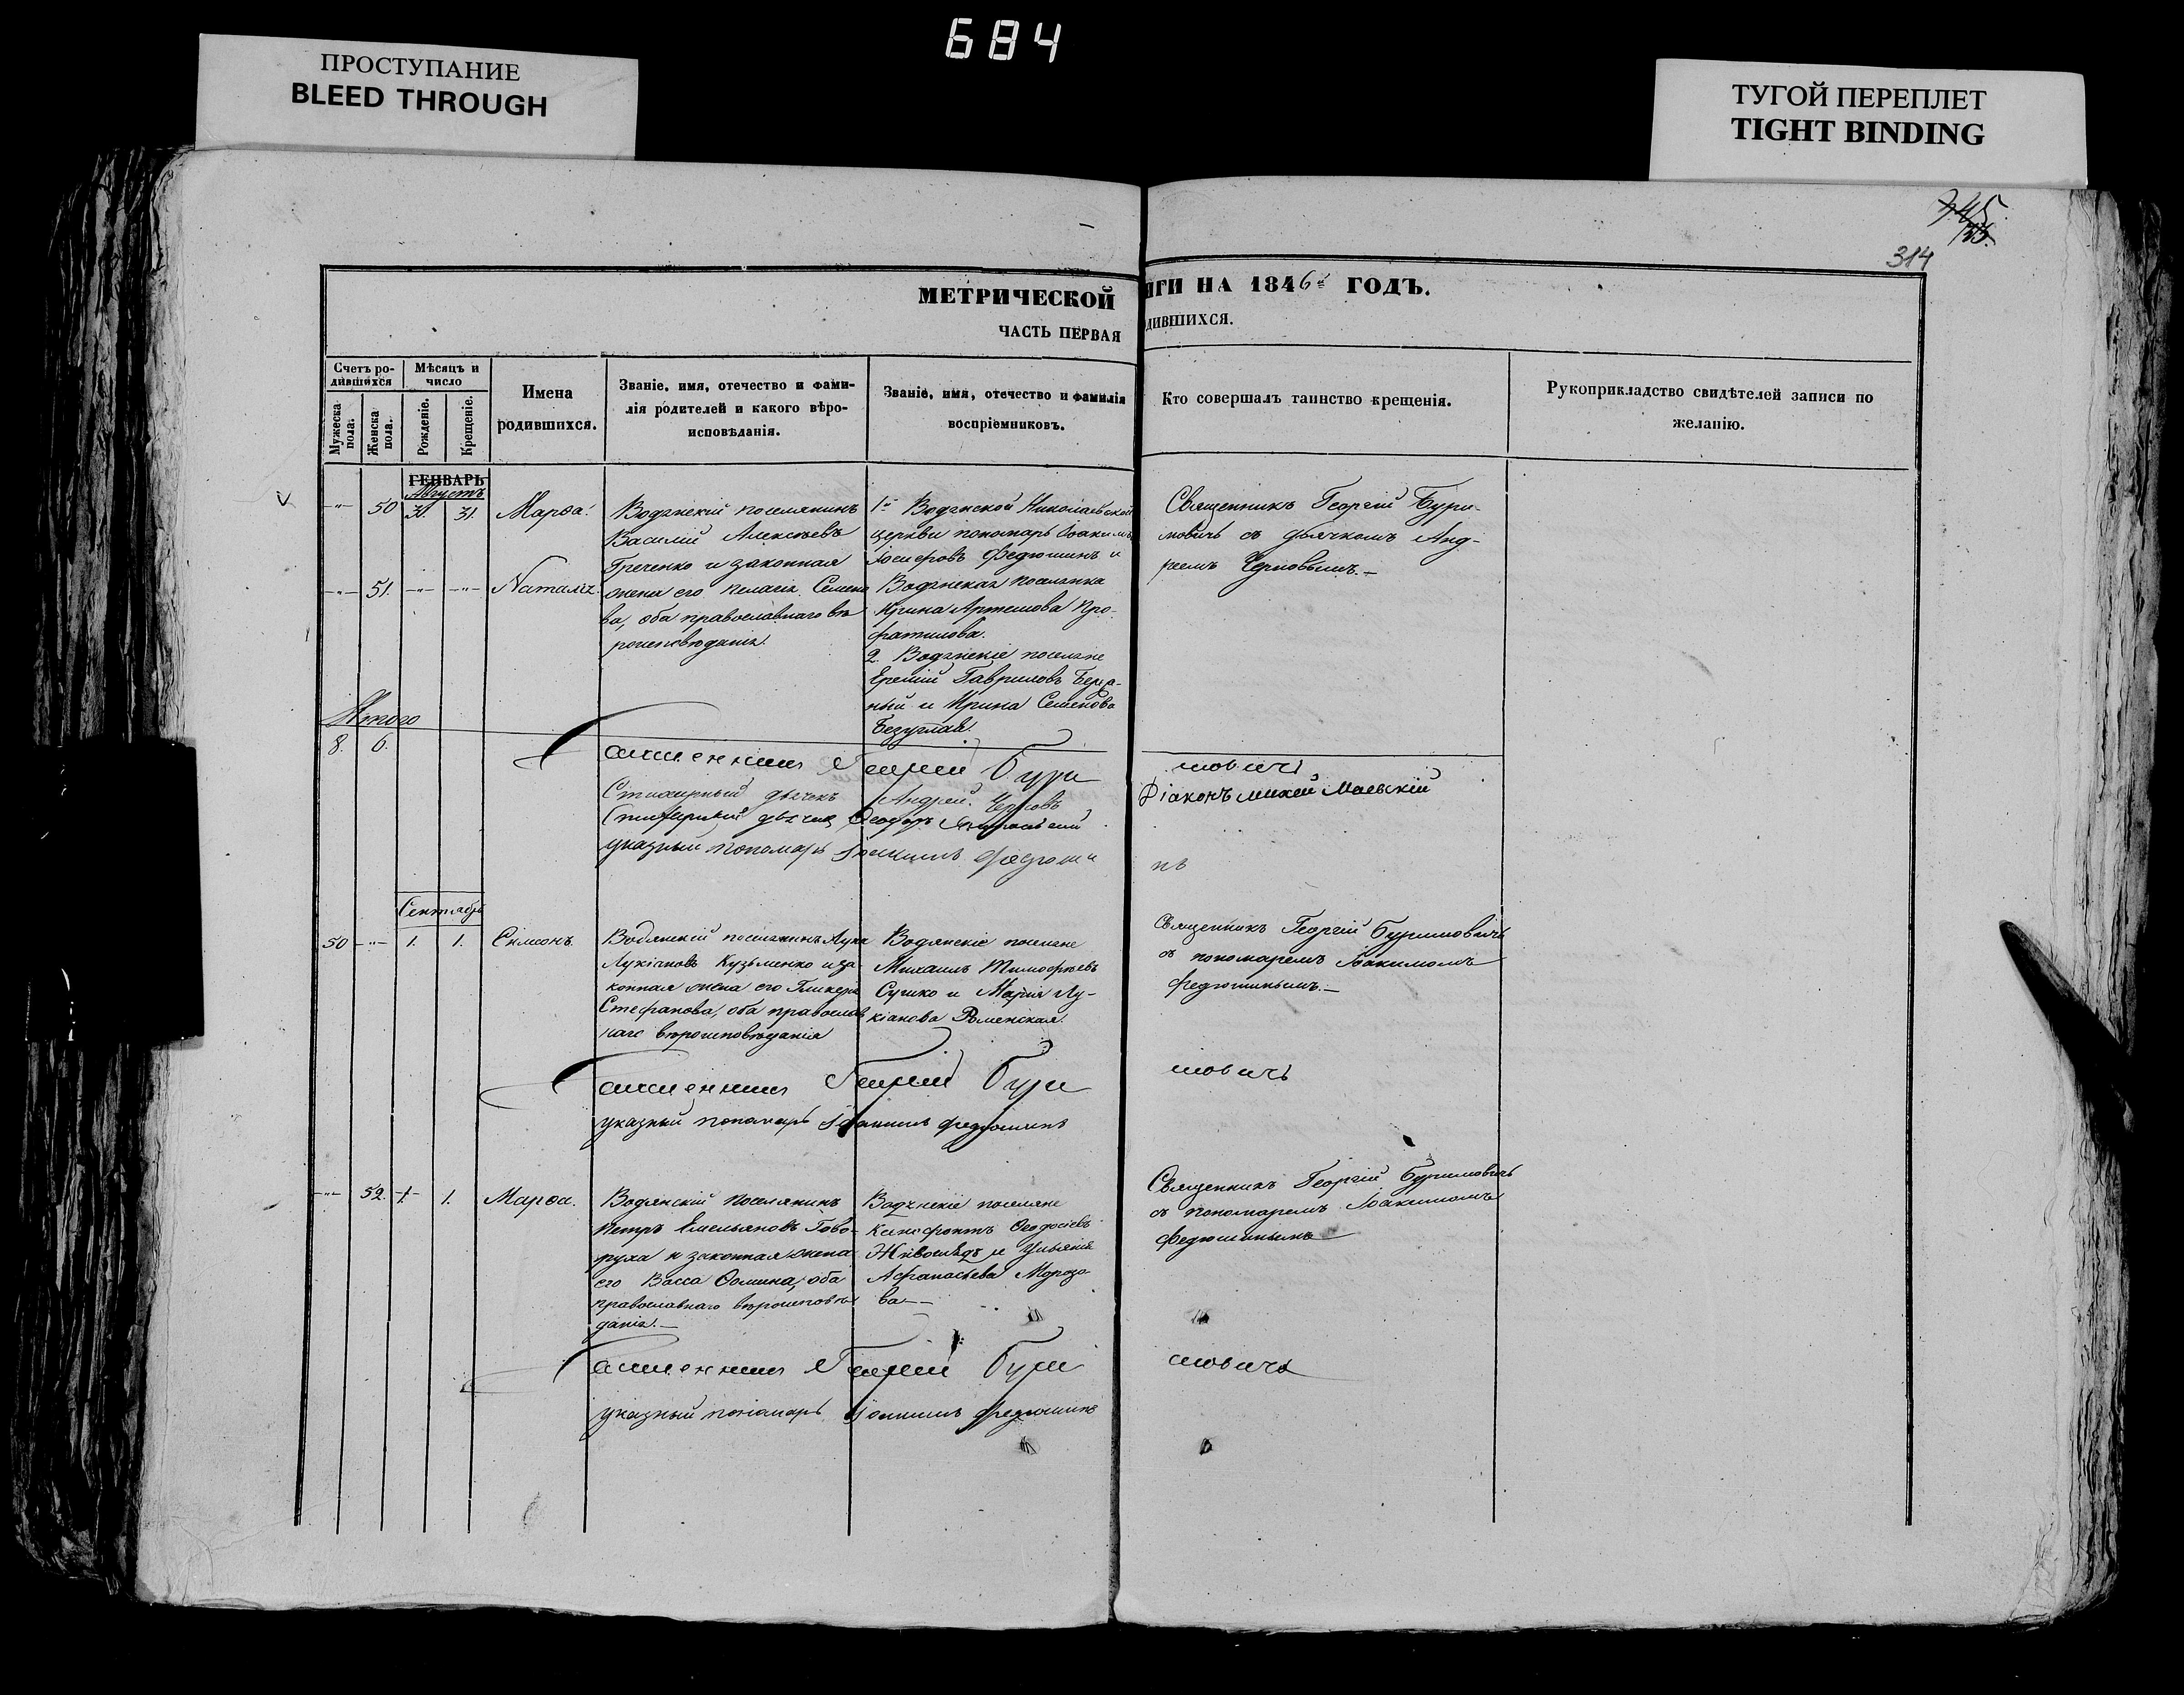 684
ПРОСТУПАНИЕ
BLEED THROUGH
ТУГОЙ ПЕРЕПЛЕТ
TIGHT BINDING
345
314
МЕТРИЧЕСКОЙ
ИГИ НА 1846й ГОДЪ.
ЧАСТЬ ПЕРВАЯ
ДИВШИХСЯ.
Счетъ ро-
дившихся
Мѣсяцъ и
число
Мужеска
пола.
Женска
пола.
Рожденіе.
Крещеніе.
Имена
родившихся.
Званіе, имя, отечество и фами-
лія родителей и какого вѣро-
исповѣданія.
Званіе, имя, отечество и фамилія
воспріемниковъ.
Кто совершалъ таинство крещенія.
Рукоприкладство свидѣтелей записи по
желанію.
ГЕНВАРЬ
Августъ
-"- 50 31. 31. Марѳа.
Водянскій поселянинъ
Василій Алексѣевъ
Греченко и законная
жена его Пелагія Семено
ва, оба православнаго вѣ
роисповѣданія.
1й Водянской Николаевской
церкви пономарь Іоакимъ
Іосифовъ Федюшинъ и
Водянская поселянка
Ирина Артемова Про-
фатилова.
2. Водянскіе поселяне
Гавриловъ
ный и Ирина Семенова
Безуглая.
Священникъ Георгій Бури-
мовичь съ дьячкомъ Анд-
реемъ Черновымъ.-
-"- 51. -"- -"- Наталія
Итого
8. 6.
Священникъ Георгій Бури
мовичъ
Стихарный дьячекъ Андрей Черновъ
Діаконъ Михей Маевскій
Стихарный дьячекъ Ѳеодоръ
указный пономарь Іоакимъ Федюши
нъ
Сентябрь
50 -"- 1. 1. Симеонъ.
Водянскій поселянинъ Лука
Лукіановъ Кузьменко и за
конная жена его Гликерія
Стефанова, оба православ
наго вѣроисповѣданія
Водянскіе поселяне
Михаилъ Тимофѣевъ
Сушко и Марія Лу-
кіанова Роменская.
Священникъ Георгій Буримовичь
съ пономаремъ Іоакимомъ
Федюшинымъ.-
Священникъ Георгій Бури
мовичъ
указный пономарь Іоакимъ Федюшинъ
-"- 52. 1. 1. Марѳа.
Водянскій поселянинъ
Петръ Емельяновъ Гово-
руха и законная жена
его Васса Ѳомина, оба
православнаго вѣроисповѣ
данія.-
Водянскіе поселяне
Ксенофонтъ Ѳеодосіевъ
и Ульянія
Афанасьева Морозо
ва-
Священникъ Георгій Буримовичь
съ пономаремъ Іоакимомъ
Федюшинымъ
Священникъ Георгій Бури
мовичъ
указный пономарь Іоакимъ Федюшинъ